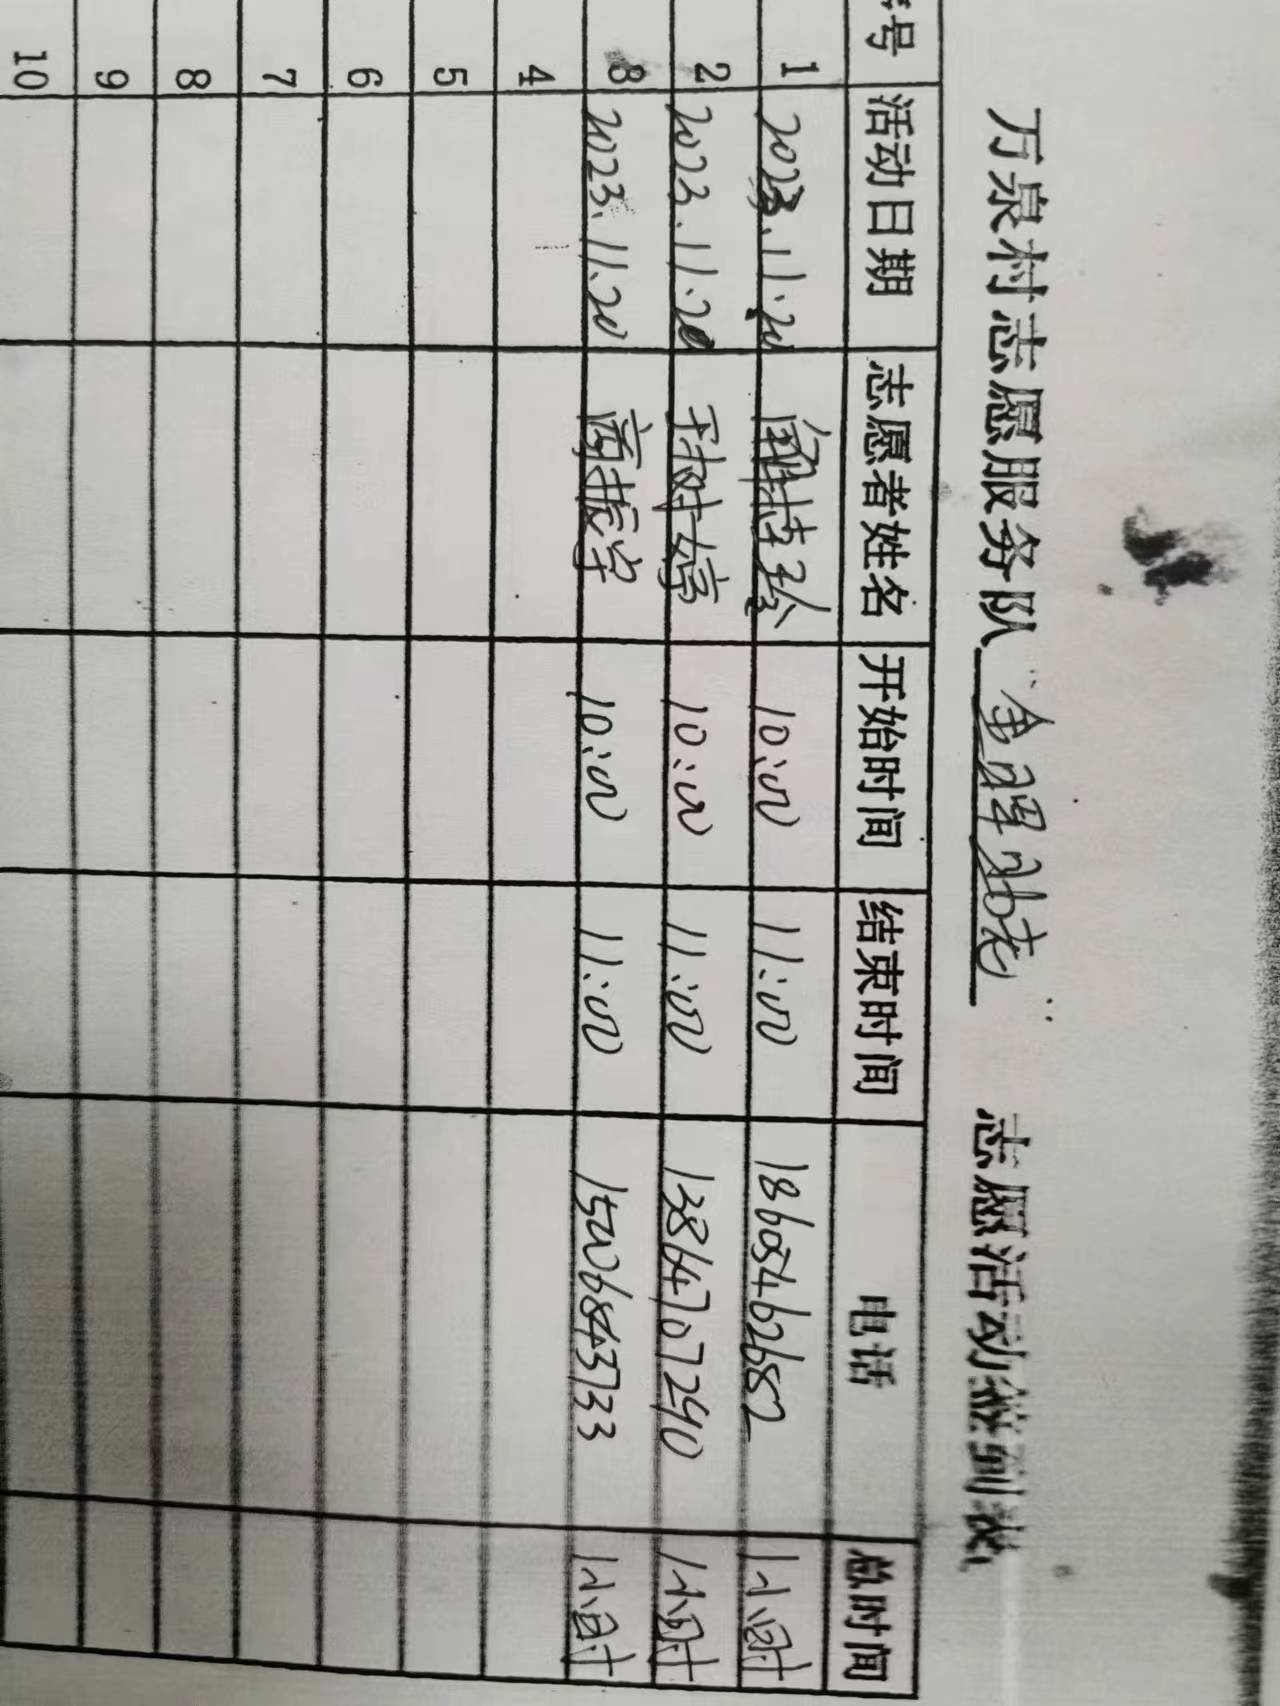 万泉村志愿服务队“金晖助老” 志愿活动签到表
号 活动日期 志愿者姓名 开始时间 结束时间 电话 总时间
1 2023.11.20 10:00 11:00 18605462682 1小时
2 2023.11.20 王树婷 10:00 11:00 13864707290 1小时
3 2023.11.20 商振宇 10:00 11:00 15006843733 1小时
4
5
6
7
8
9
10